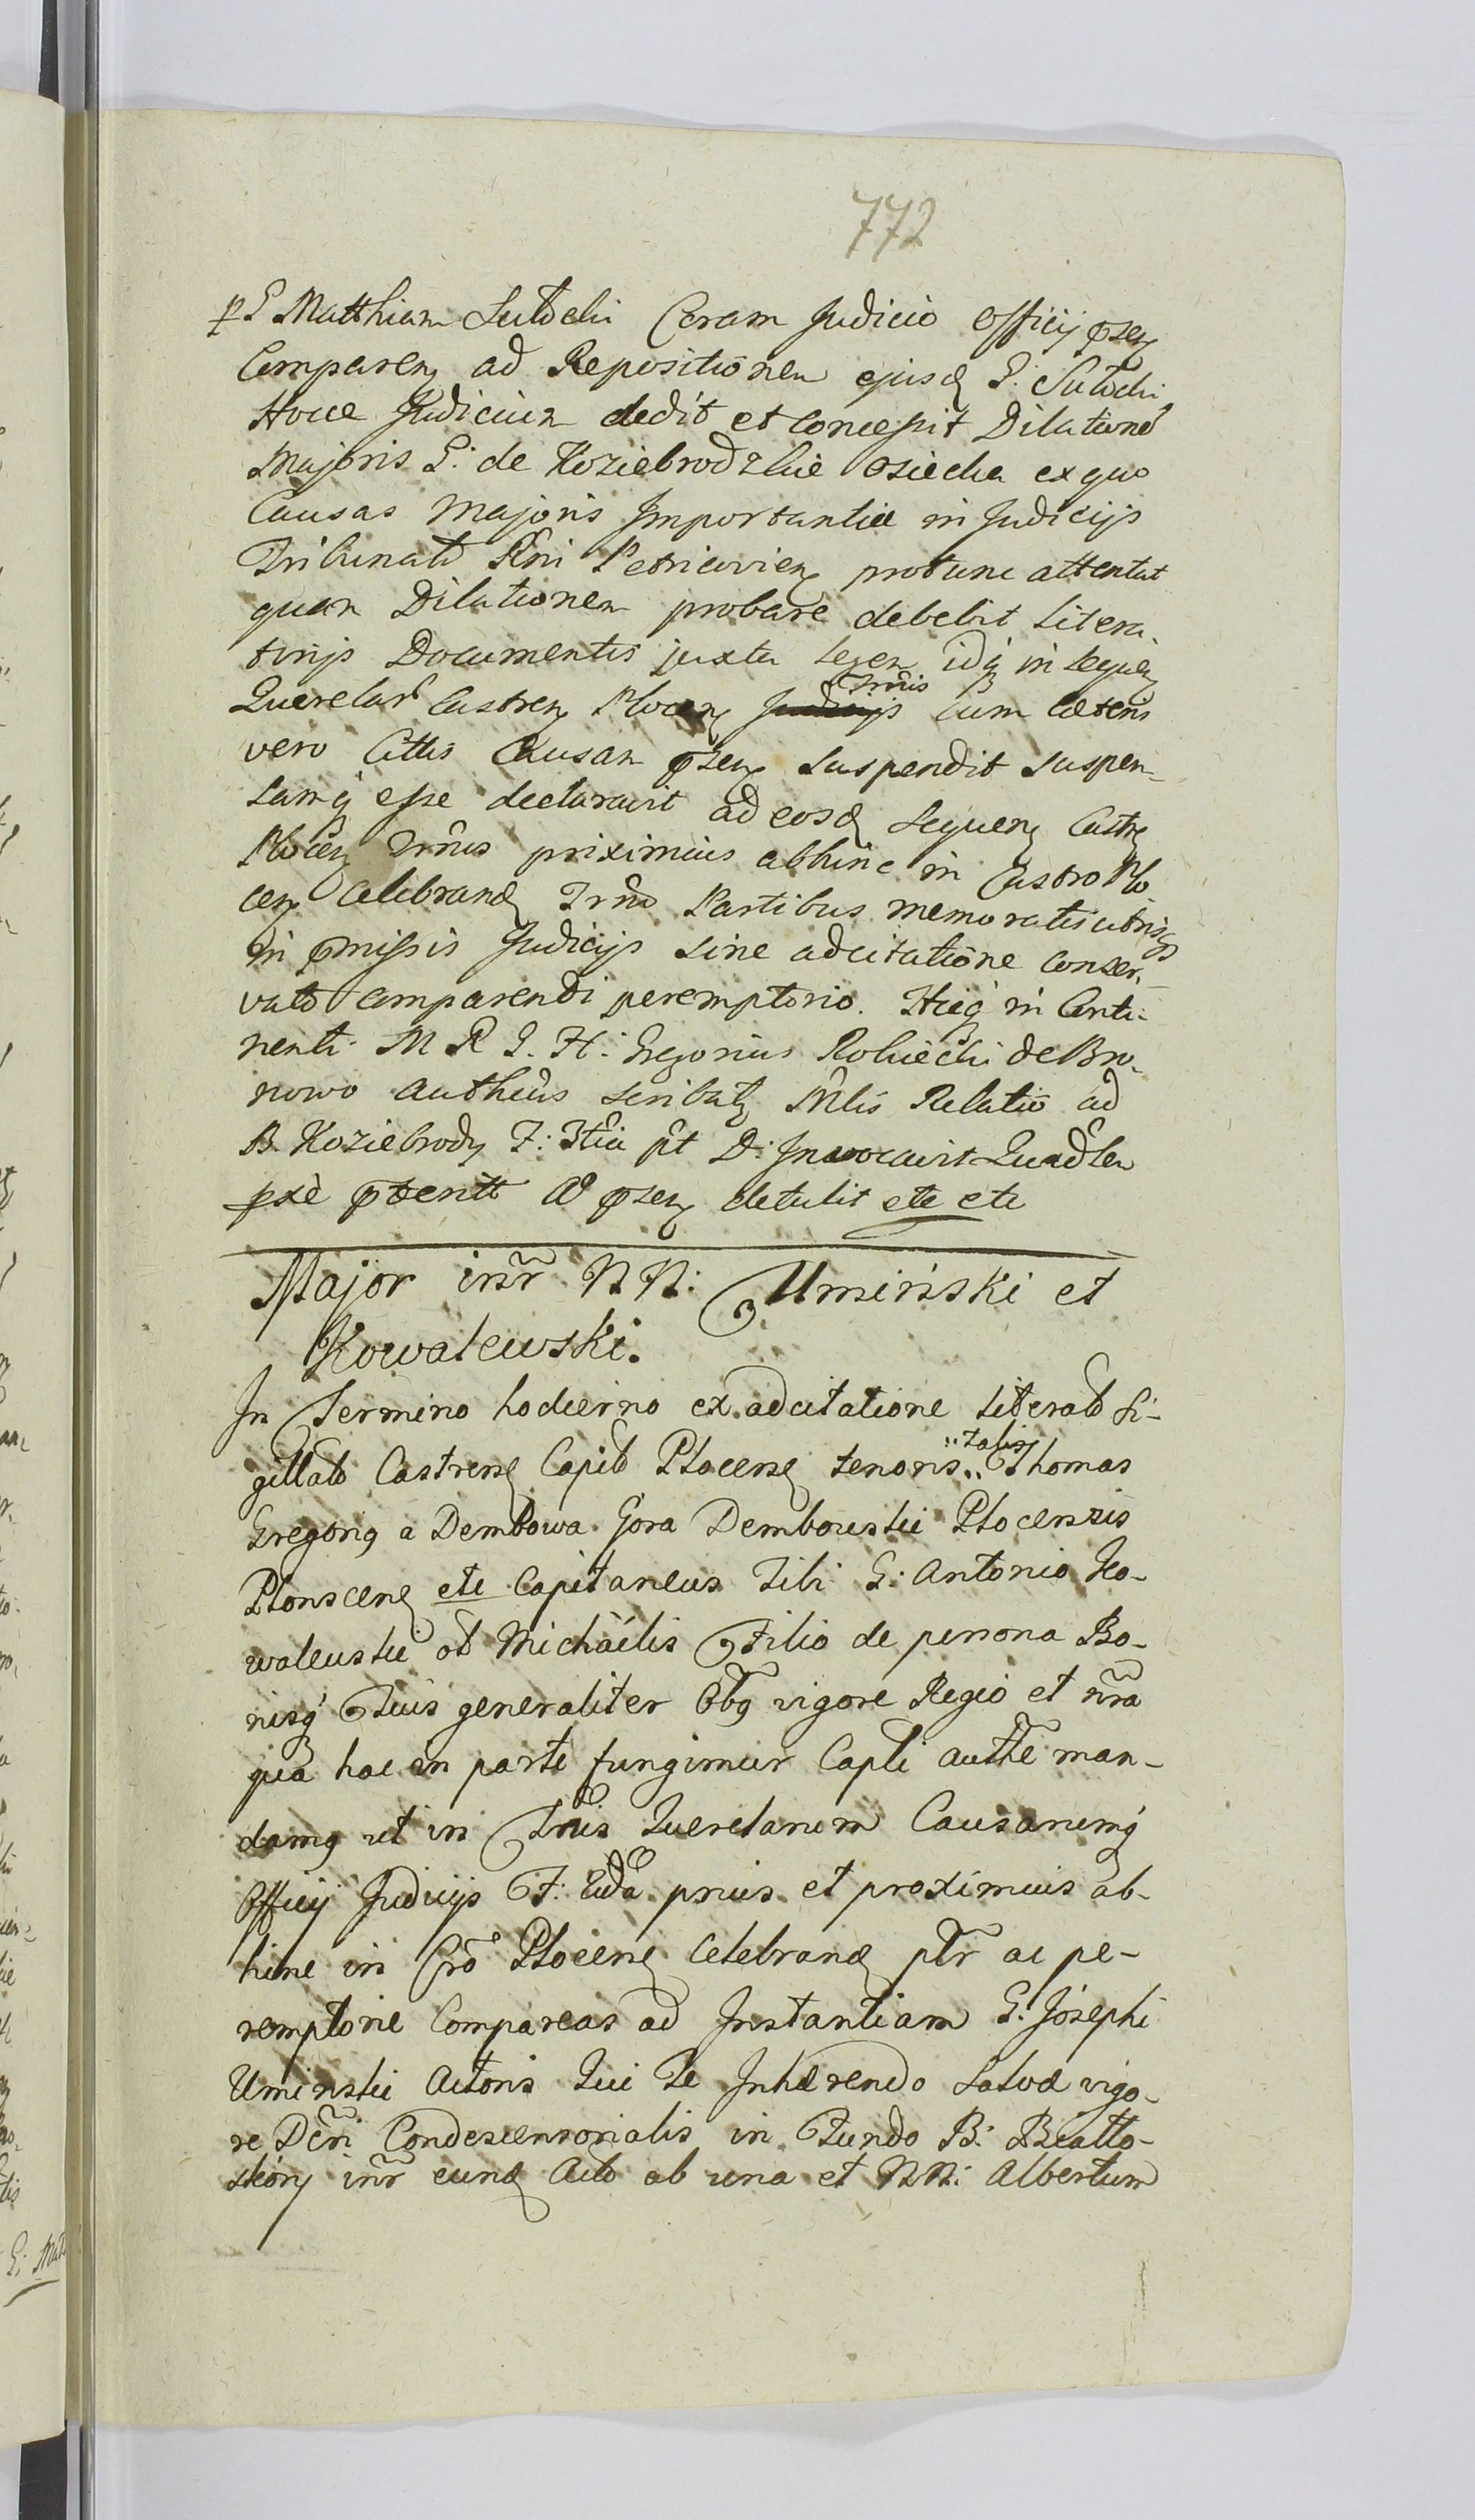 772
p G Matthiam Sutocki Coram Judicio Officij psen
Comparen ad Repositionem ejusd G: Sutocki
Hocce Judicium dedit et concessit Dilationē
Majoris G: de Koziebrodzkie Osiecka ex quo
Causas Majoris Importantiæ in Judicijs
Tribunalb Rni Petricovien protunc attentat
quam Dilationem probare debebit Litera-
torijs Documentis juxta Legem idq in sequen
Querelar Castren Plocen Trmis cum cæteris
vero Cittis Causam psen suspendit suspen-
samq esse declaravit ad eosd sequen Castren
Plocen Trmos proximius abhinc in Castro Plo
cen celebrand Trmo Partibus memoratis utrisq
in pmissis Judicijs sine adcitatione conser-
vato comparendi peremptorio. Hicq in Conti-
nenti M R G. H: Gregorius Robiecki de Bro-
nowo autheus scribal Mlis Relatio ad
B. Koziebrody F: 3tia pt D: Invocavit Quadlem
pxe pterit ad psen detulit etc etc
Major inr NN: Uminski et
Kowalewski.
In Termino hodierno ex adcitatione Literalb Si-
gillalb Castrens Capit Plocens tenoris talis Thomas
Gregorig a Dembowa Gora Dembowski Plocensis
Plonscens etc Capitaneus Tibi G: Antonio Ko-
walewski ol Michaelis Filio de persona Bo-
nisq Tuis generaliter Obq vigore Regio et nra
qua hac in parte fungimur Capli autthe man-
damg ut in Trmis Querelarum Causarumq
Officij Judicijs F: 2da prius et proximius ab-
hinc in Cro Plocens Celebrand ptr ac pe-
remptorie Compareas ad Instantiam G: Josephi
Uminski Actoris Qui Te Inhærendo Salvæ vigo-
re Dcri Condescensorialis in Fundo B: Białło-
skory inr eund Acto ab una et NN: Albertum